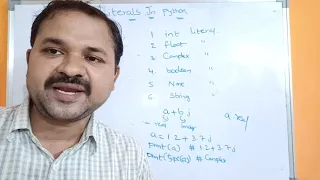 Literals In Python
1 int litery
2 float "
3 Complex "
4. boolean "
5 None "
6. String "
a+bj
real imag
a.real
a = 1.2+3.7j
print(a) # 1.2+3.7j
print(type(a)) # Complex